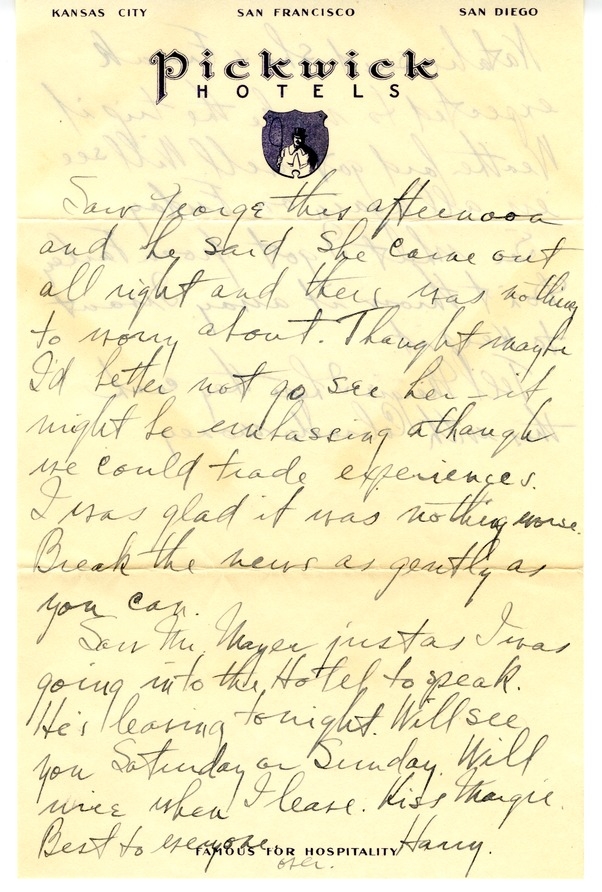 KANSAS CITY SAN FRANCISCO SAN DIEGO
Pickwick
HOTELS
Saw George this afternoon
and he said she came out
all right and there was nothing
to worry about. Thought maybe
I'd better not go see her – it
might be embarrasing although
we could trade experiences.
I was glad it was nothing worse.
Break the news as gently as
you can.
Saw Mr. Mayer just as I was
going into the Hotel to speak.
He's leaving tonight. Will see
you Saturday or Sunday. Will
wire when I leave. Kiss Margie.
Best to everyone. Harry.
FAMOUS FOR HOSPITALITY
over.